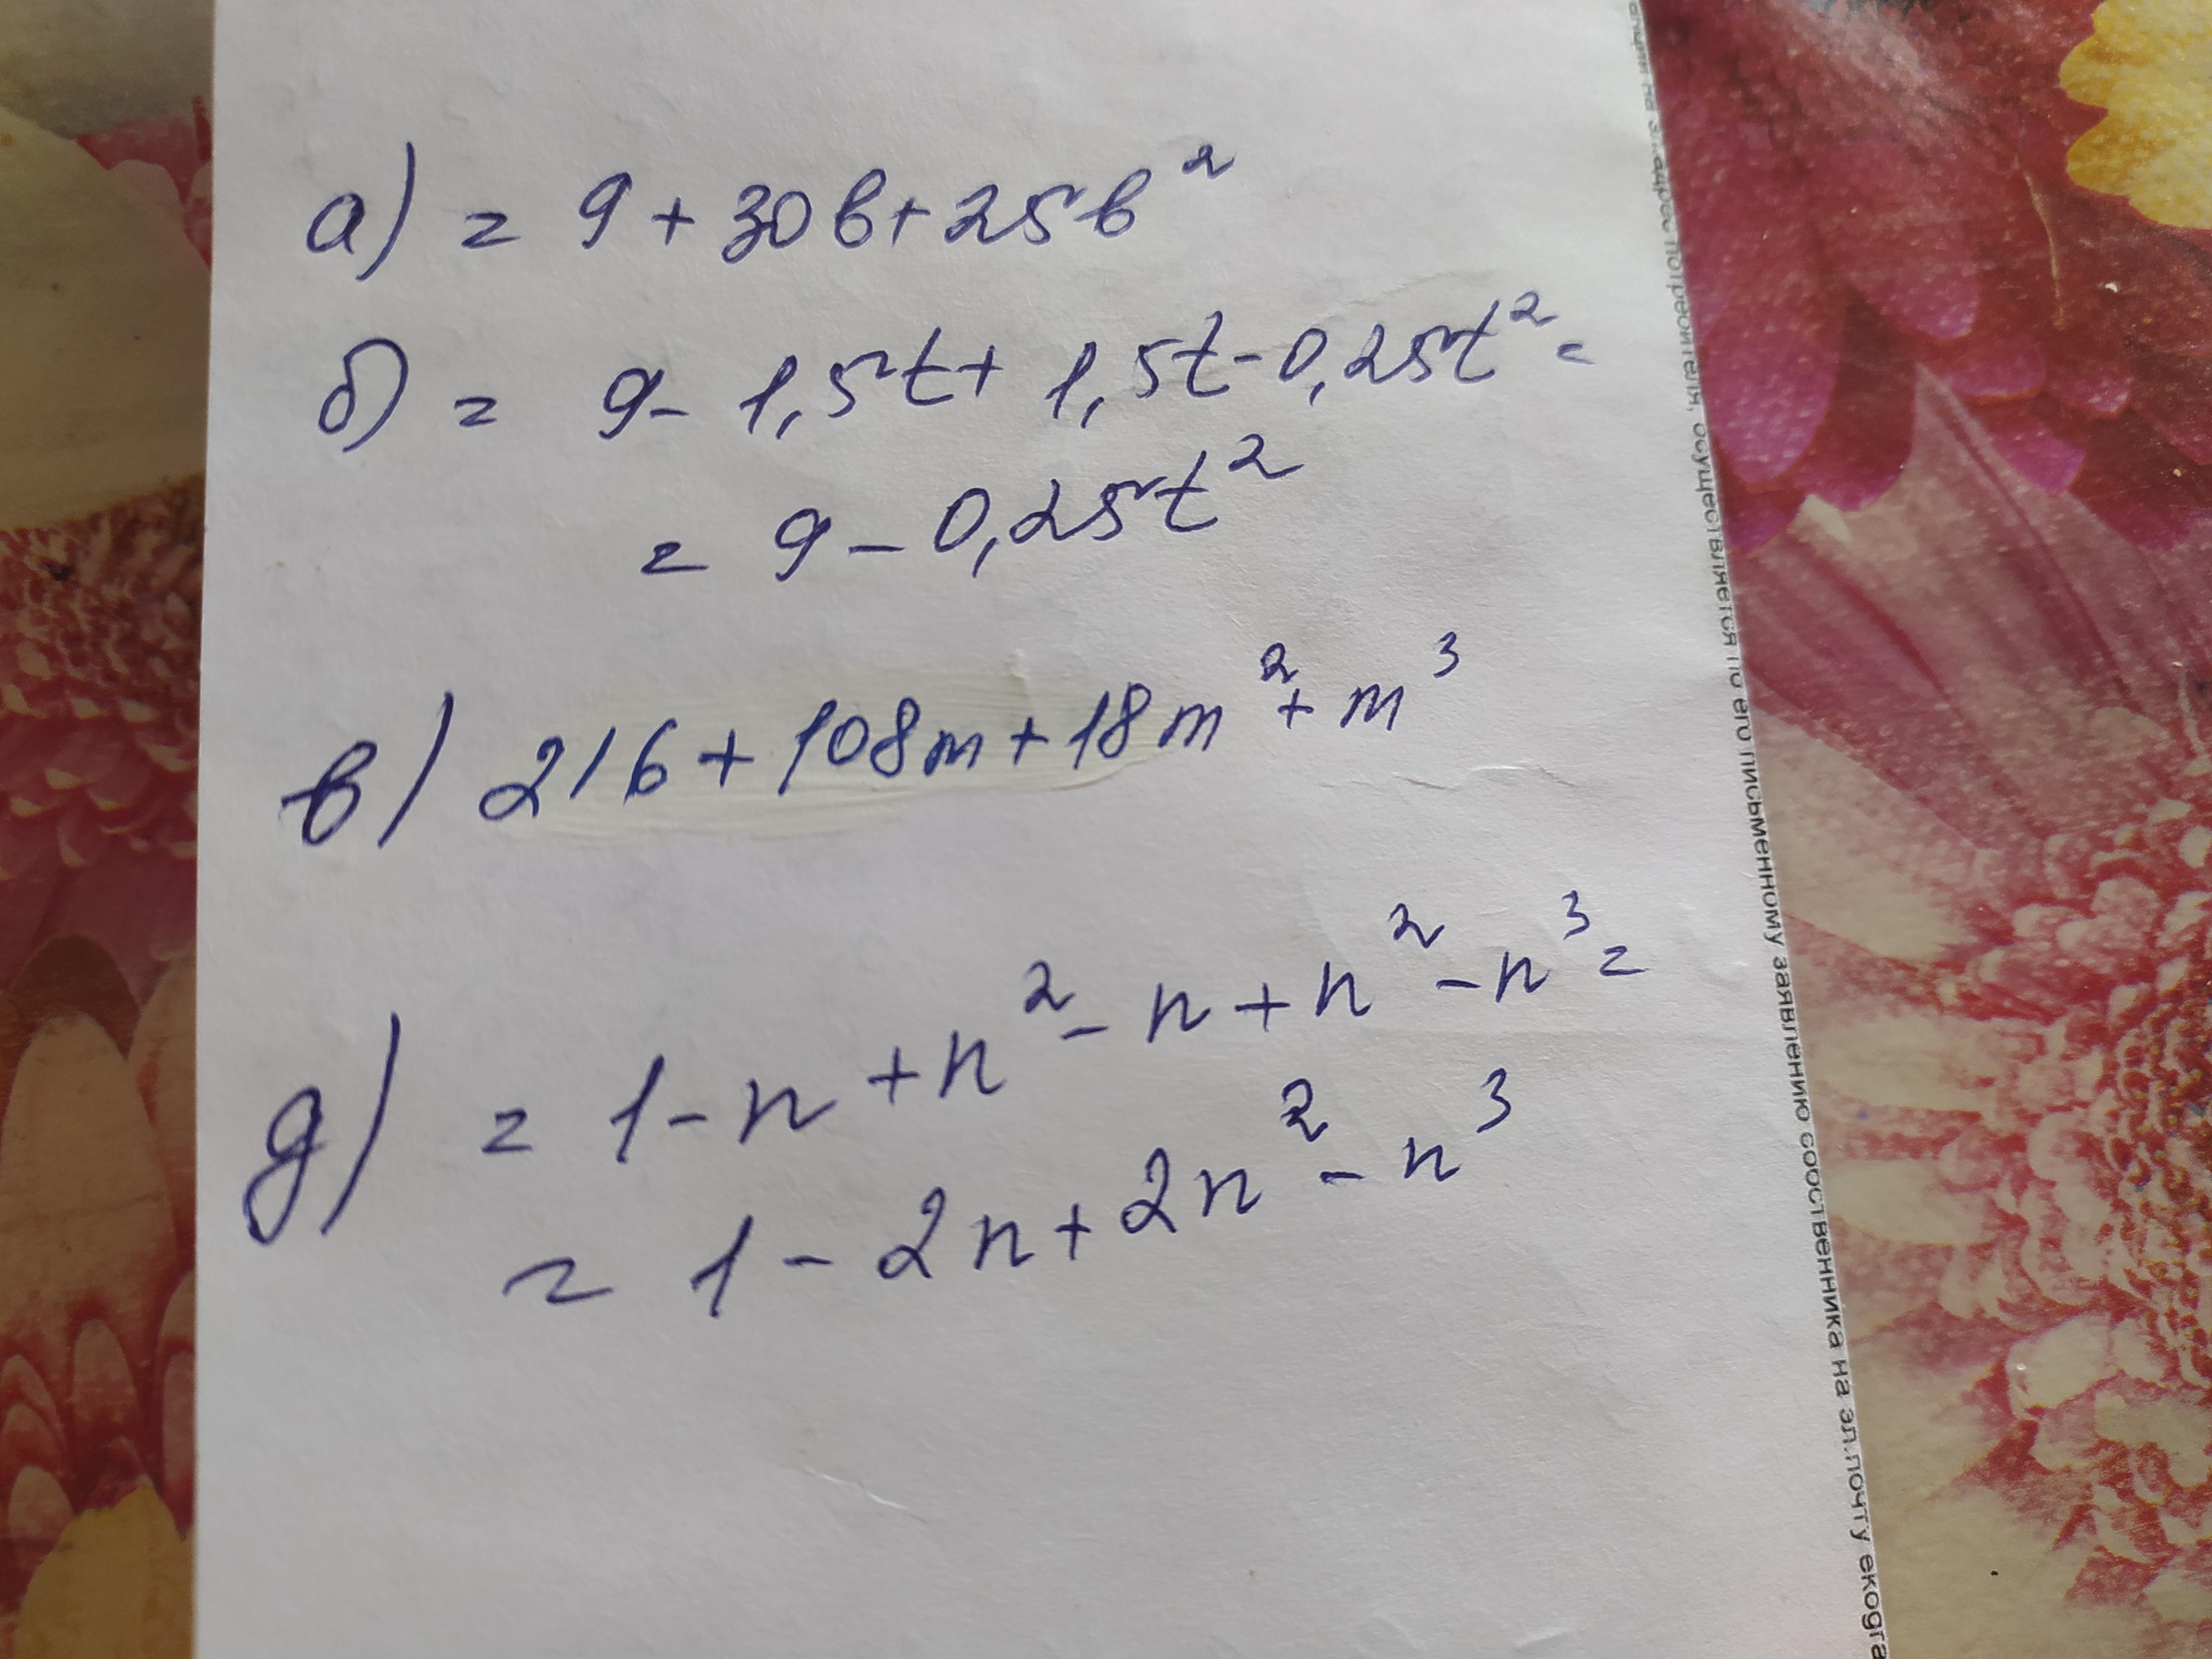 а) = 9 + 30в + 25в²
б) = 9 - 1,5t + 1,5t - 0,25t² =
= 9 - 0,25t²
в) 216 + 108m + 18m² + m³
д) = 1 - n + n² - n + n² - n³ =
= 1 - 2n + 2n² - n³
потребителя, осуществляется по его письменному заявлению собственника на эл.почту